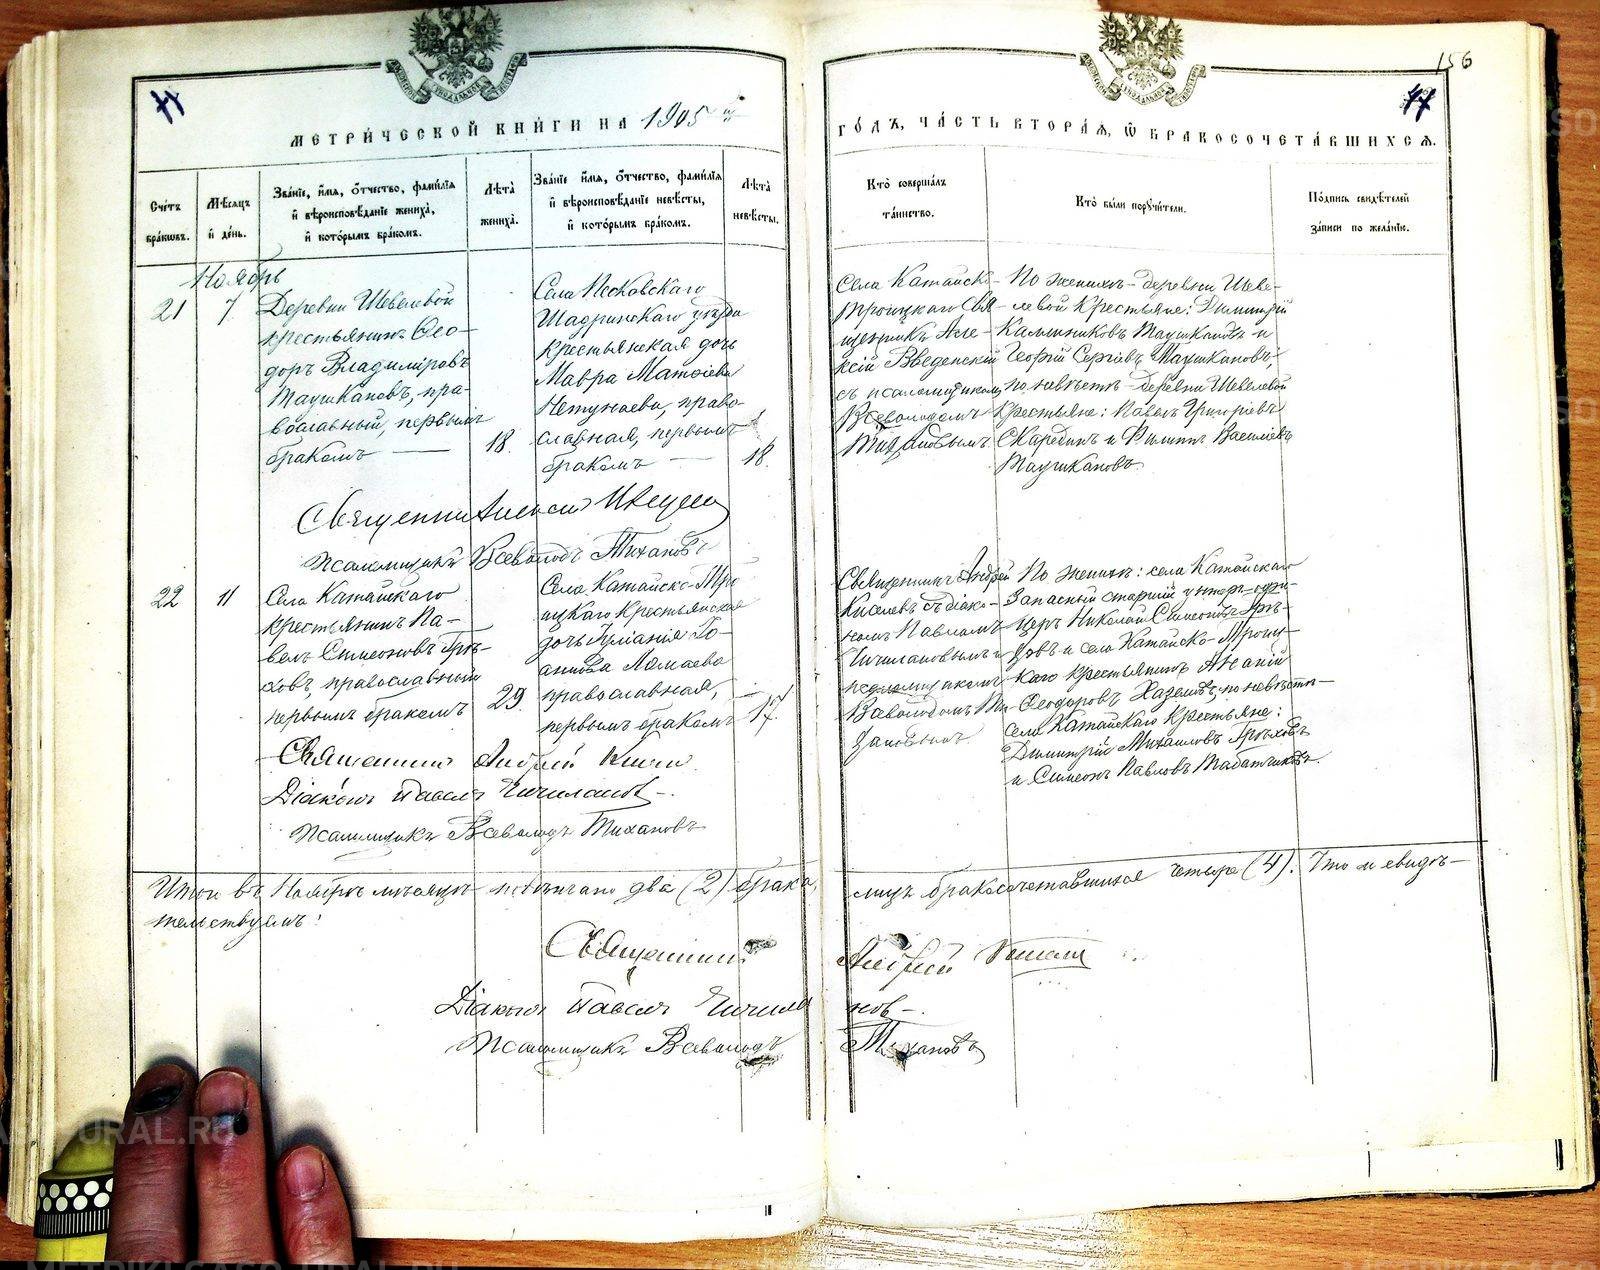 156
77
77
МЕТРИЧЕСКОЙ КНИГИ НА 1905 й
ГОДЪ, ЧАСТЬ ВТОРАЯ, Ѽ БРАКОСОЧЕТАВШИХСЯ.
Счетъ браковъ.
Мѣсяцъ и день.
Званіе, имя, отчество, фамилія
и вѣроисповѣданіе жениха,
и которымъ бракомъ.
Лѣта жениха.
Званіе имя, отчество, фамилія
и вѣроисповѣданіе невѣсты,
и которымъ бракомъ.
Лѣта невѣсты.
Кто совершалъ
таинство.
Кто были поручители.
Подпись свидѣтелей
записи по желанію.
Ноябрь
21
7
Деревни Шевелевой
крестьянинъ Ѳео-
доръ Владиміровъ
Таушкановъ, пра-
вославный, первымъ
бракомъ
18.
Села Песковскаго
Шадринскаго уѣзда
крестьянская дочь
Мавра Матѳіева
Нетунаева, право-
славная, первымъ
бракомъ
18.
Села Катайско-
Троицкаго Свя-
щенникъ Але-
ксій Введенскій
съ псаломщикомъ
Всеволодомъ
Тихановымъ
По женихѣ - деревни Шеве-
левой крестьяне: Димитрій
Калинниковъ Таушкановъ и
Георгій Сергіевъ Таушкановъ;
по невѣстѣ - деревни Шевелевой
крестьяне: Павелъ Григоріевъ
Скарединъ и Филиппъ Василіевъ
Таушкановъ
Священникъ Алексій
Псаломщикъ Всеволодъ Тихановъ
22
11
Села Катайскаго
крестьянинъ Па-
велъ Симеоновъ Грѣ-
ховъ, православный
первымъ бракомъ
29.
Села Катайско-Тро-
ицкаго крестьянская
дочь Іуліанія Іо-
аннова Ламаева
православная,
первымъ бракомъ
17.
Священникъ Андрей
Киселевъ съ діако-
номъ Павломъ
Чичилановымъ и
псаломщикомъ
Всеволодомъ Ти-
хановымъ
По женихѣ: села Катайскаго
Запасный старшій унтеръ-офи-
церъ Николай Симеоновъ Грѣ-
ховъ и села Катайско-Троиц-
каго крестьянинъ Аѳанасій
Ѳеодоровъ; по невѣстѣ-
села Катайскаго крестьяне:
Димитрій Михаиловъ Грѣховъ
и Симеонъ Павловъ Табатчиковъ.
Священникъ Андрей
Діаконъ Павелъ Чичилановъ
Псаломщикъ Всеволодъ Тихановъ
Итого въ Ноябрѣ мѣсяцѣ повѣнчано два (2) брака,
лицъ бракосочетавшихся четыре (4). Что и свидѣ-
тельствуемъ:
Священникъ Андрей
Діаконъ Павелъ Чичилановъ.
Псаломщикъ Всеволодъ Тихановъ